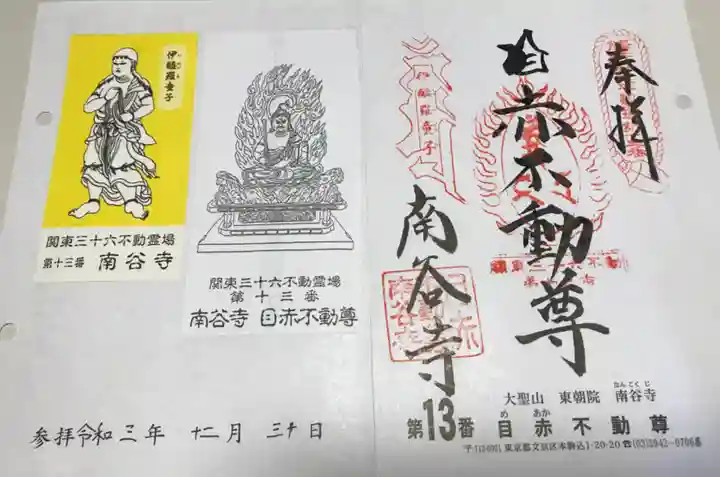 伊醯羅童子
関東三十六不動霊場
第十三番 南谷寺
関東三十六不動霊場
第十三番
南谷寺 目赤不動尊
参拝令和三年 十二月 三十日
奉拝
目赤不動尊
伊醯羅童子
南谷寺
大聖山 東朝院 南谷寺
なんこくじ
第13番 目赤不動尊
め あか
東京都文京区本駒込1-20-20